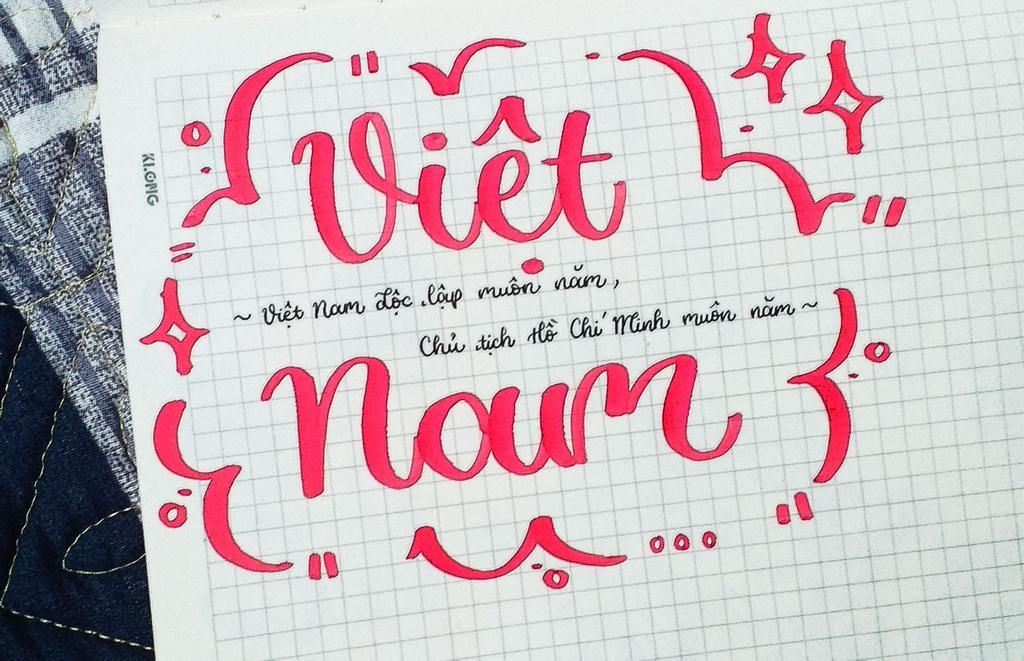 Việt
~ Việt Nam độc lập muôn năm,
Chủ tịch Hồ Chí Minh muôn năm ~
Nam
KLONG